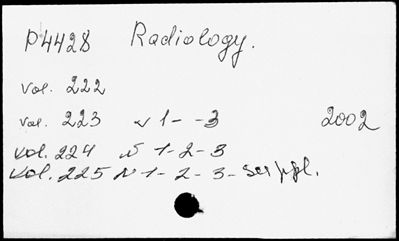 P4428 Radiology.
Vol. 222
Vol. 223 N 1- -3 2002
Vol. 224 N 1-2-3
Vol. 225 N 1-2-3-suppl.